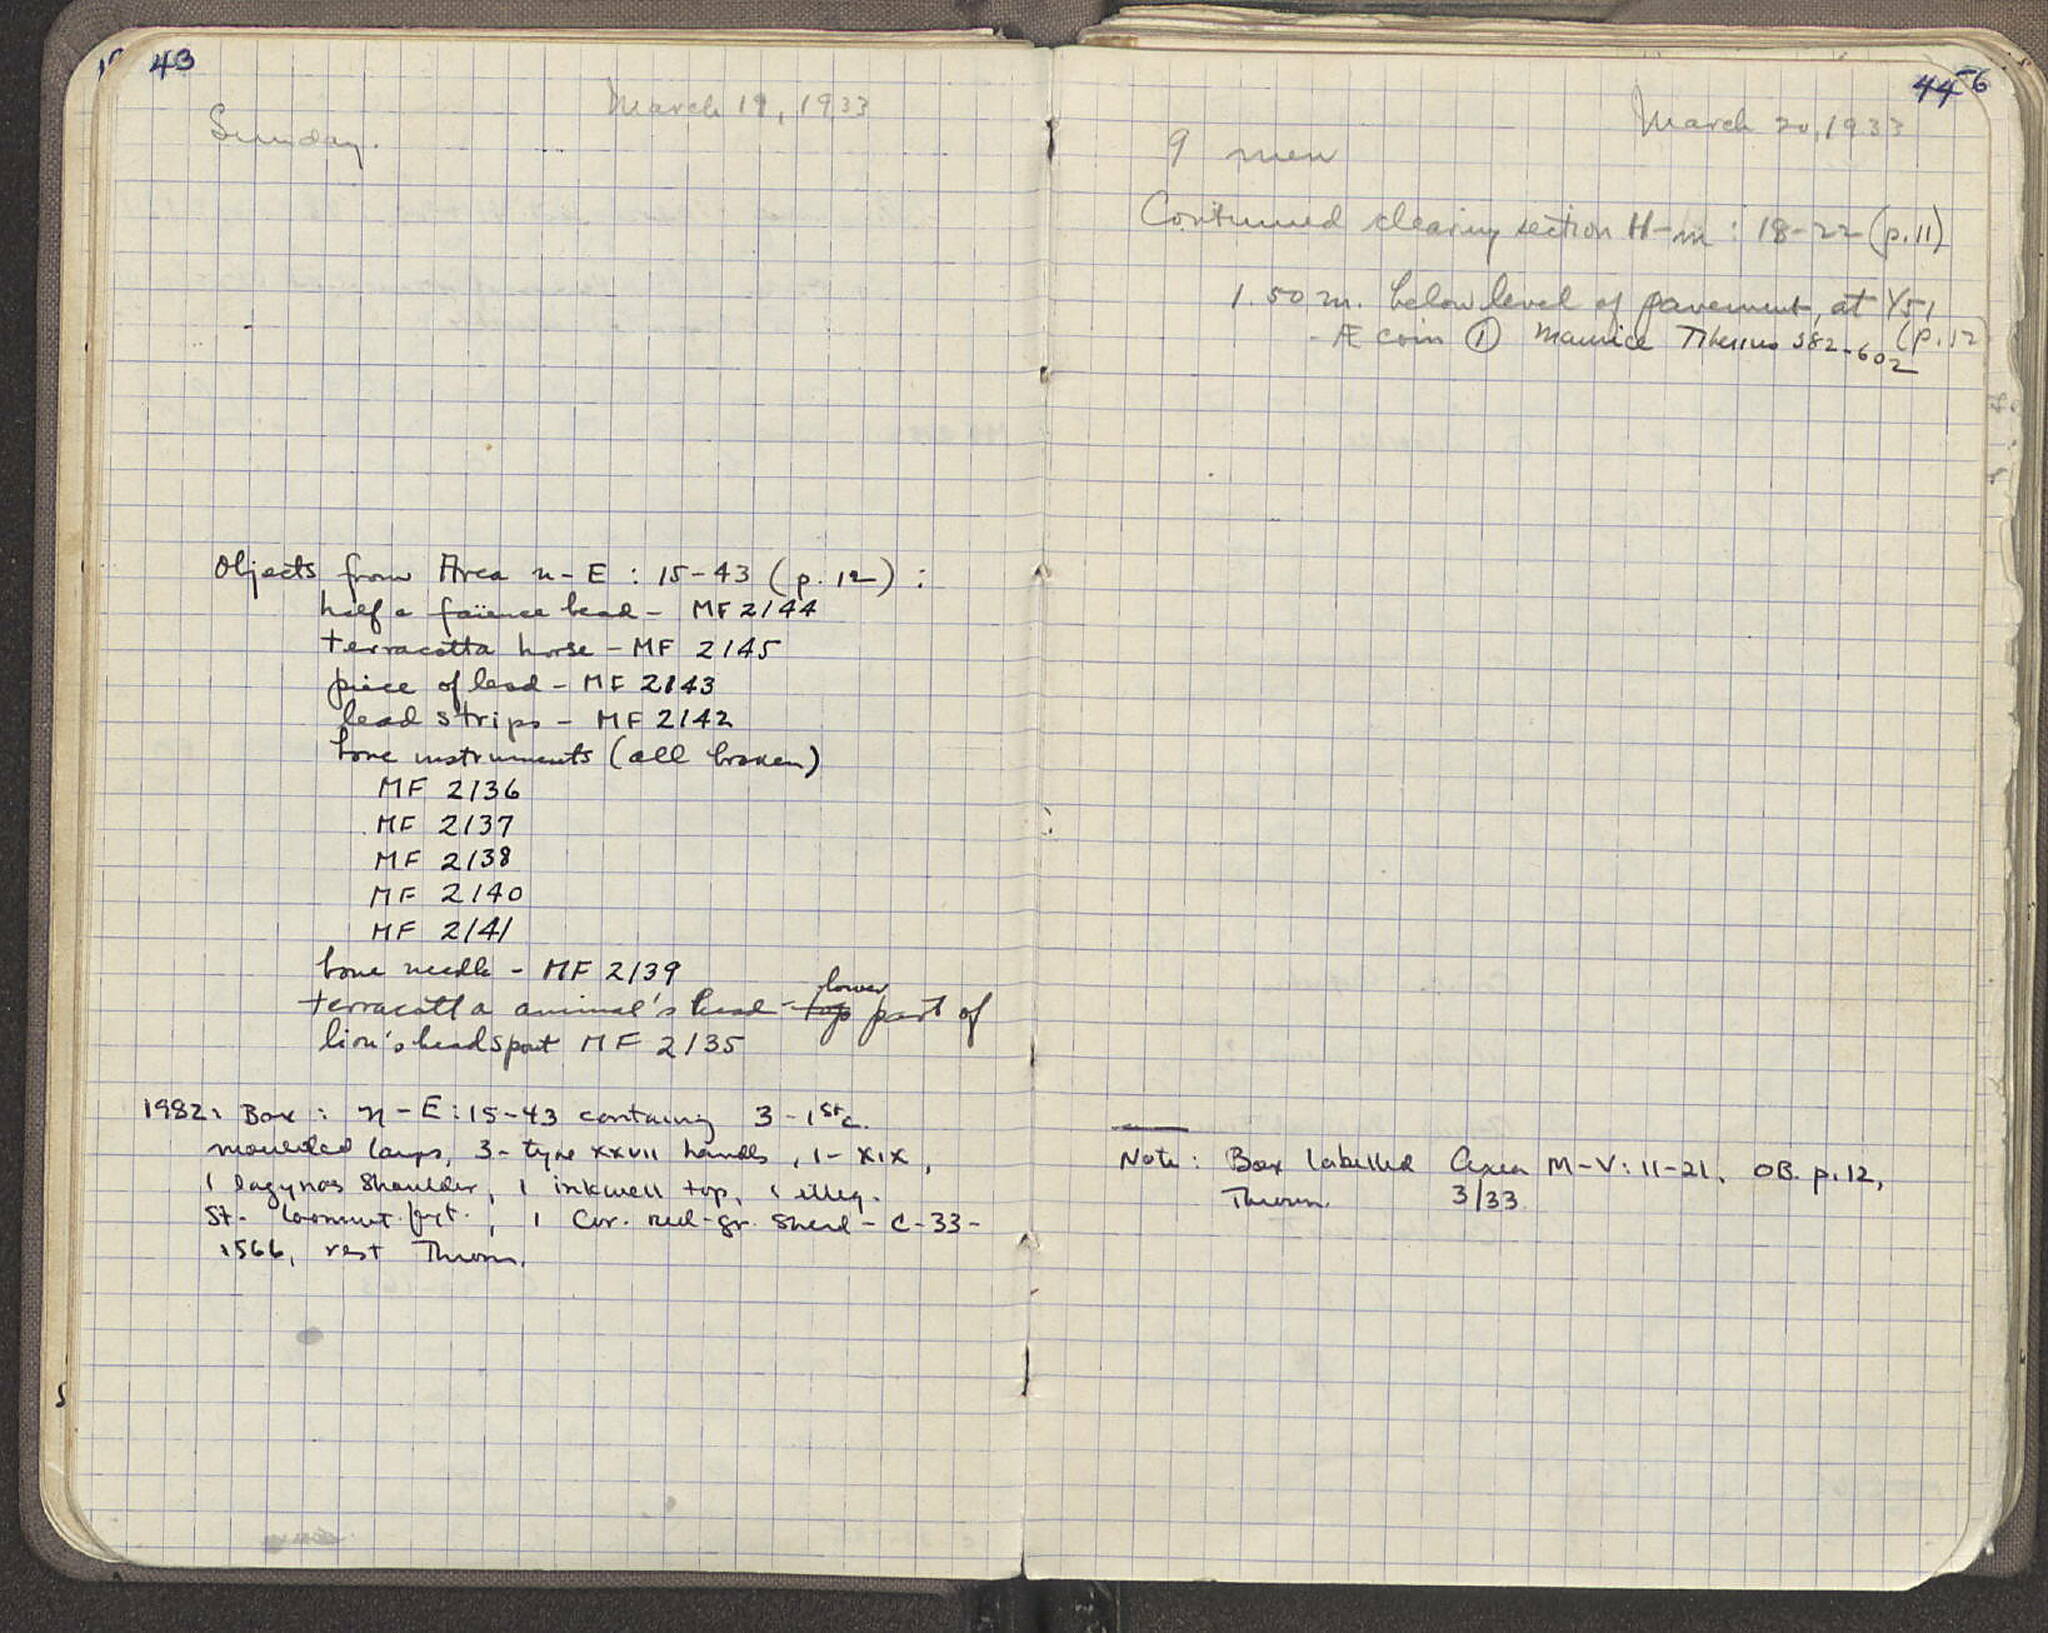 43
March 19, 1933
Sunday.
Objects from Area n-E : 15-43 (p. 12) :
half a faïence bead - MF 2144
terracotta horse - MF 2145
piece of lead - MF 2143
lead strips - MF 2142
bone instruments (all broken)
MF 2136
MF 2137
MF 2138
MF 2140
MF 2141
bone needle - MF 2139
lower
terracotta animal's head - top part of
lion's head spout MF 2135
1982: Box: n-E:15-43 containing 3-1st c.
moulded lamps, 3-type XXVII handles, 1-XIX,
1 lagynos shoulder, 1 inkwell top, 1 illeg.
St. frgt., 1 Cor. red-gr. sherd - C-33-
1566, rest Thrown.
44-6
March 20, 1933
9 men
Continued clearing section H-m : 18-22 (p. 11)
1.50 m. below level of pavement, at Y51
(p. 12
- Æ coin ① Maurice Tiberius 582-602
Note: Box labelled Area M-V: 11-21, OB. p. 12,
Thrown. 3/33